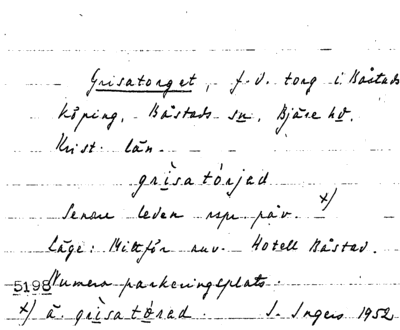 Grisatorget, f.d. torg i Båstads
köping, Båstads sn, Bjäre hd.
Krist. län.
grìsatórjad
Senare leden rspr påv. x)
Läge: Mittför nuv. Hotell Båstad.
5198 Numera parkeringsplats.
x) ä. grìsatórad. S. Ingers 1952